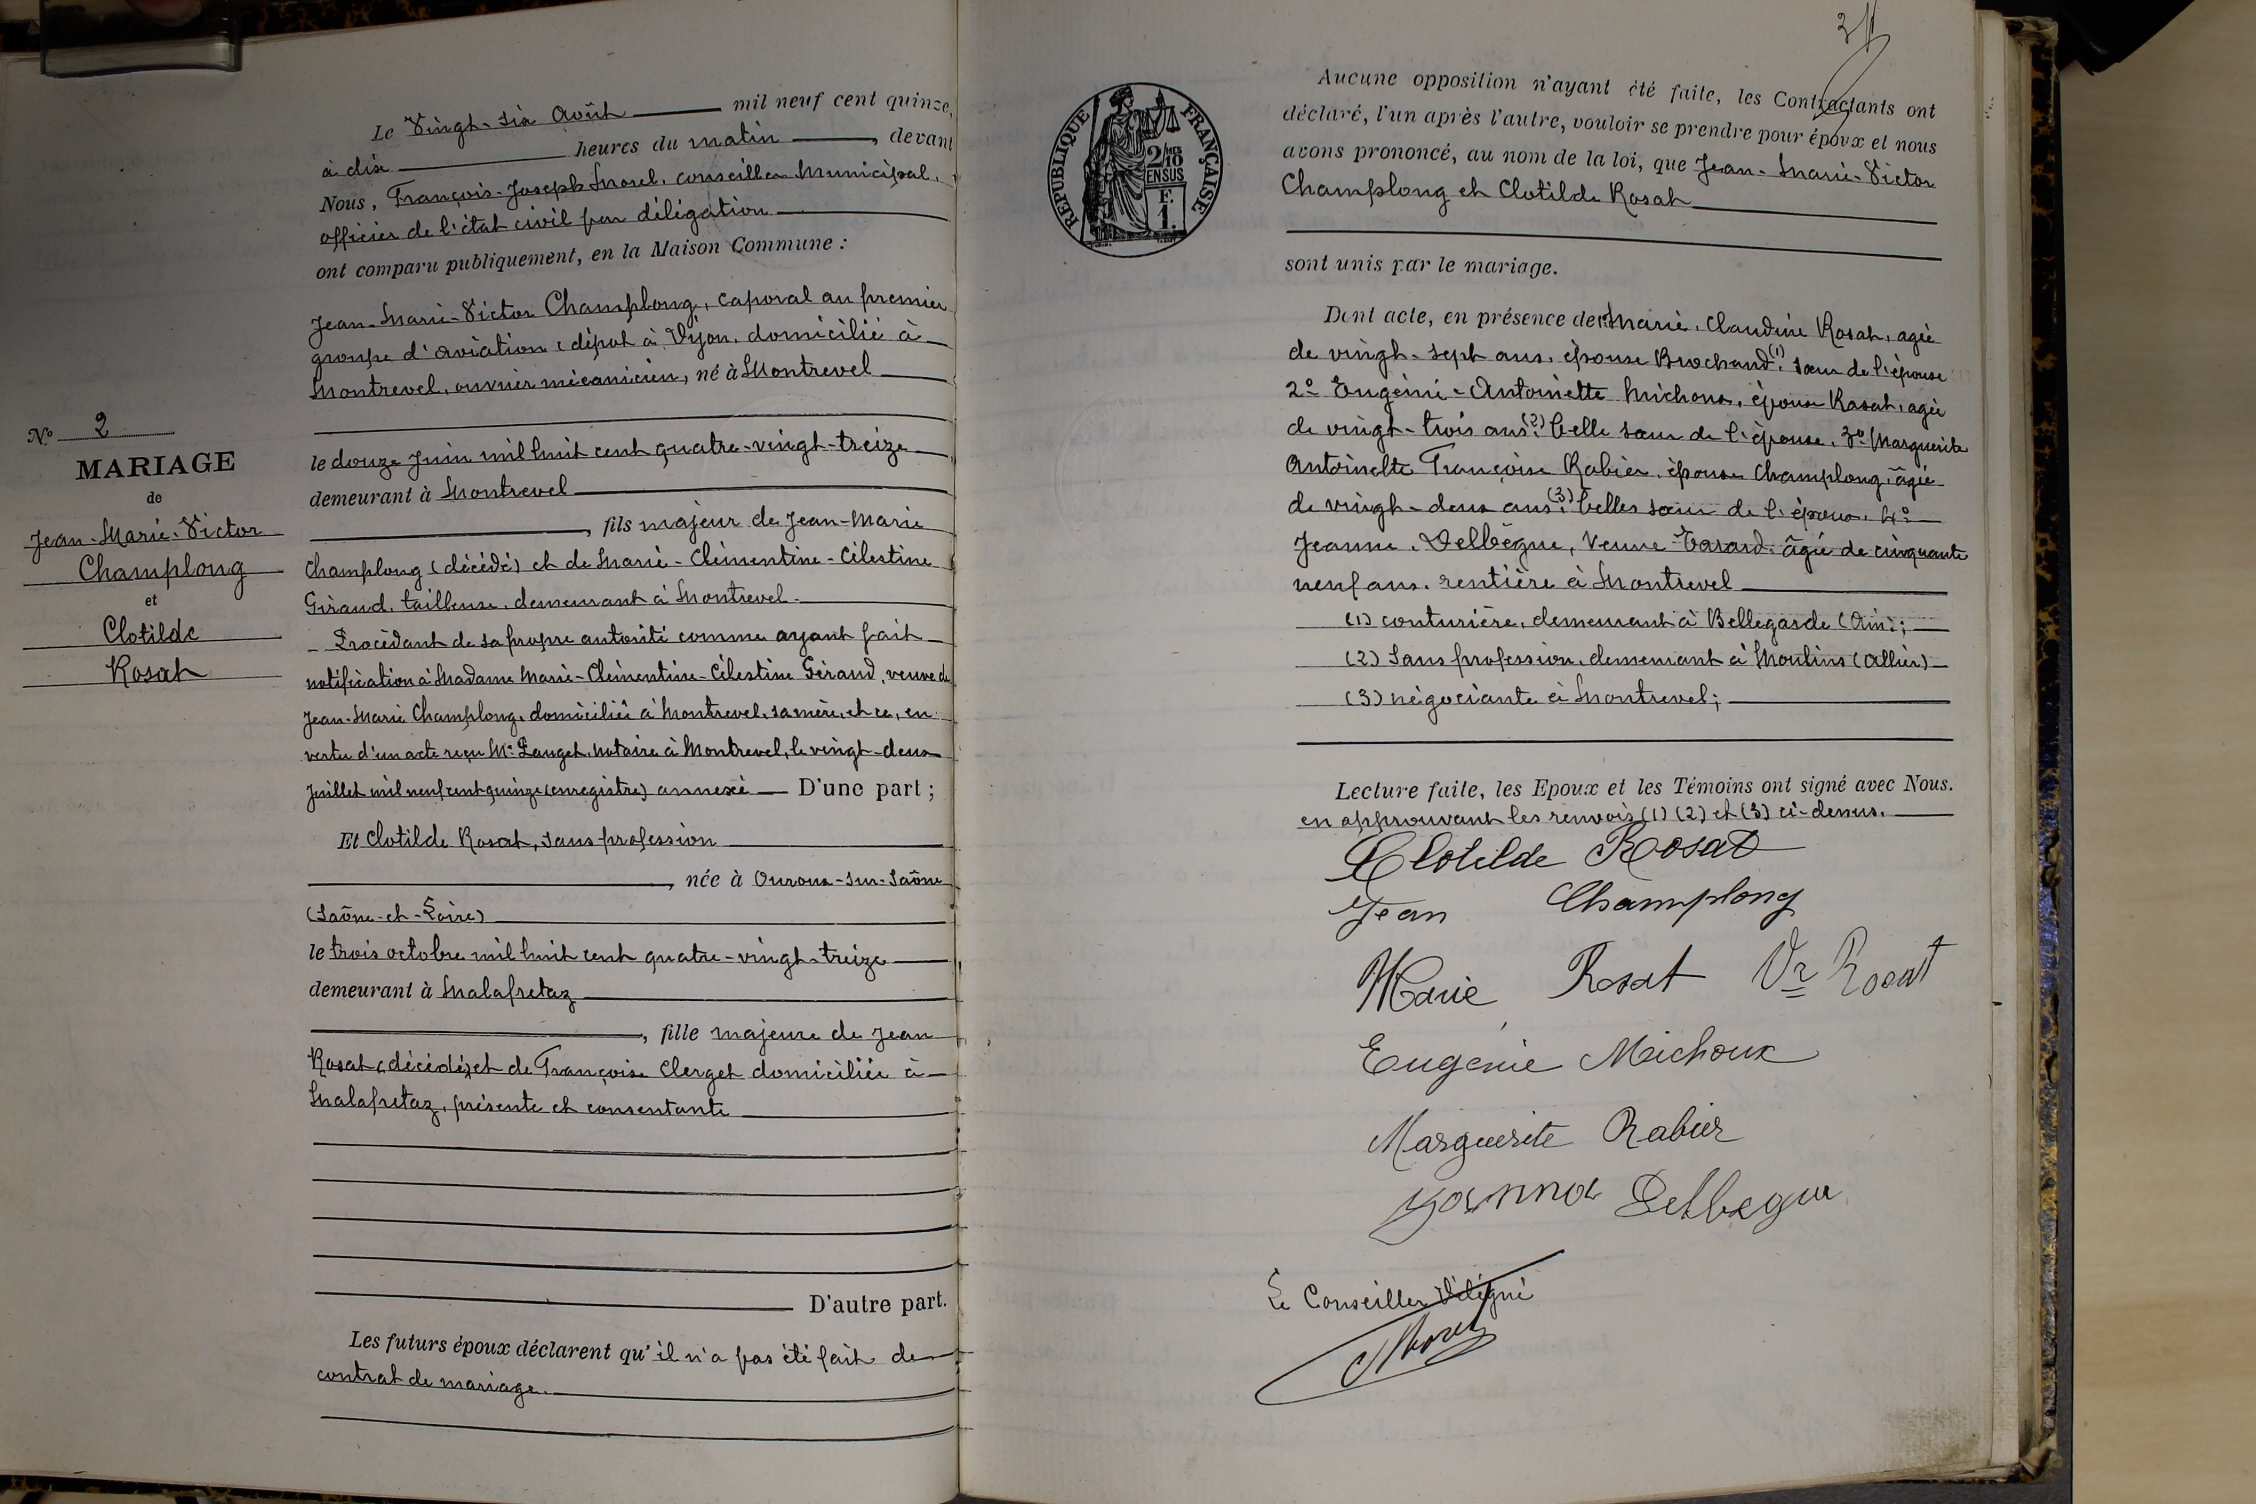 Le Vingt-six Août mil neuf cent quinze,
à dix heures du matin, devant
Nous, François-Joseph Morel, conseiller Municipal,
officier de l'état civil par délégation
ont comparu publiquement, en la Maison Commune :
Jean-Marie-Victor Champlong, caporal au premier
groupe d'aviation (dépot à Dijon, domicilié à
Montrevel, ouvrier mécanicien, né à Montrevel
No 2
MARIAGE
de
Jean-Marie-Victor
Champlong
et
Clotilde
Rosat
le douze Juin mil huit cent quatre-vingt-treize
demeurant à Montrevel
, fils majeur de Jean-Marie
Champlong (décédé) et de Marie-Clémentine-Célestine
Giraud, tailleuse, demeurant à Montrevel.
Procédant de sa propre autorité comme ayant fait
notification à Madame Marie-Clémentine-Célestine Giraud, veuve de
Jean-Marie Champlong, domiciliée à Montrevel, sa mère, et ce, en
vertu d'un acte reçu Me Pauget, notaire à Montrevel, le vingt-deux
Juillet mil neuf cent quinze (enregistré) annexé D'une part ;
Et Clotilde Rosat, sans profession
, née à Ouroux-sur-Saône
(Saône-et-Loire)
le trois octobre mil huit cent quatre-vingt-treize
demeurant à Malafretaz
, fille majeure de Jean
Rosat (décédé) et de Françoise Clerget domiciliée à
Malafretaz, présente et consentante
D'autre part.
Les futurs époux déclarent qu'il n'a pas été fait de
contrat de mariage.
RÉPUBLIQUE FRANÇAISE
2/10
EN SUS
F.
1.
Aucune opposition n'ayant été faite, les Contractants ont
déclaré, l'un après l'autre, vouloir se prendre pour époux et nous
avons prononcé, au nom de la loi, que Jean-Marie-Victor
Champlong et Clotilde Rosat
sont unis par le mariage.
Dont acte, en présence de 1º Marie, Claudine Rosat, agée
de vingt-sept ans, épouse Brochand (1), sœur de l'épouse
2º Eugénie-Antoinette Michoux, épouse Rosat, agée
de vingt-trois ans (2), belle sœur de l'épouse, 3º Marguerite
Antoinette Françoise Rabier, épouse Champlong, âgée
de vingt-deux ans (3), belle sœur de l'époux, 4º
Jeanne, Delbègue, veuve âgée de cinquante
neuf ans, rentière à Montrevel
(1) couturière, demeurant à Bellegarde (Ain);
(2) sans profession, demeurant à Moulins (Allier)
(3) négociante à Montrevel;
Lecture faite, les Epoux et les Témoins ont signé avec Nous.
en approuvant les renvois (1) (2) et (3) ci-dessus.
Clotilde Rosat
Jean Champlong
Marie Rosat Vve Rosat
Eugénie Michoux
Marguerite Rabier
Jeanne Delbegue
Le Conseiller Délégué
Morel